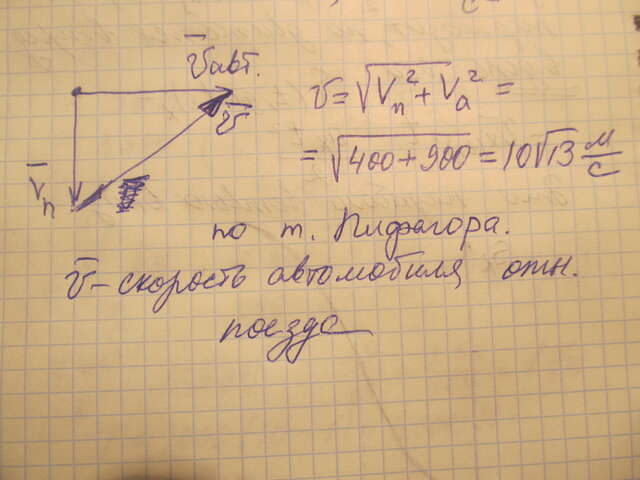 v̄авт.
v̄
v̄п
v = √(Vп² + Vа²) =
= √(400 + 900) = 10√13 м/с
по т. Пифагора.
v̄ – скорость автомобиля отн.
поезда